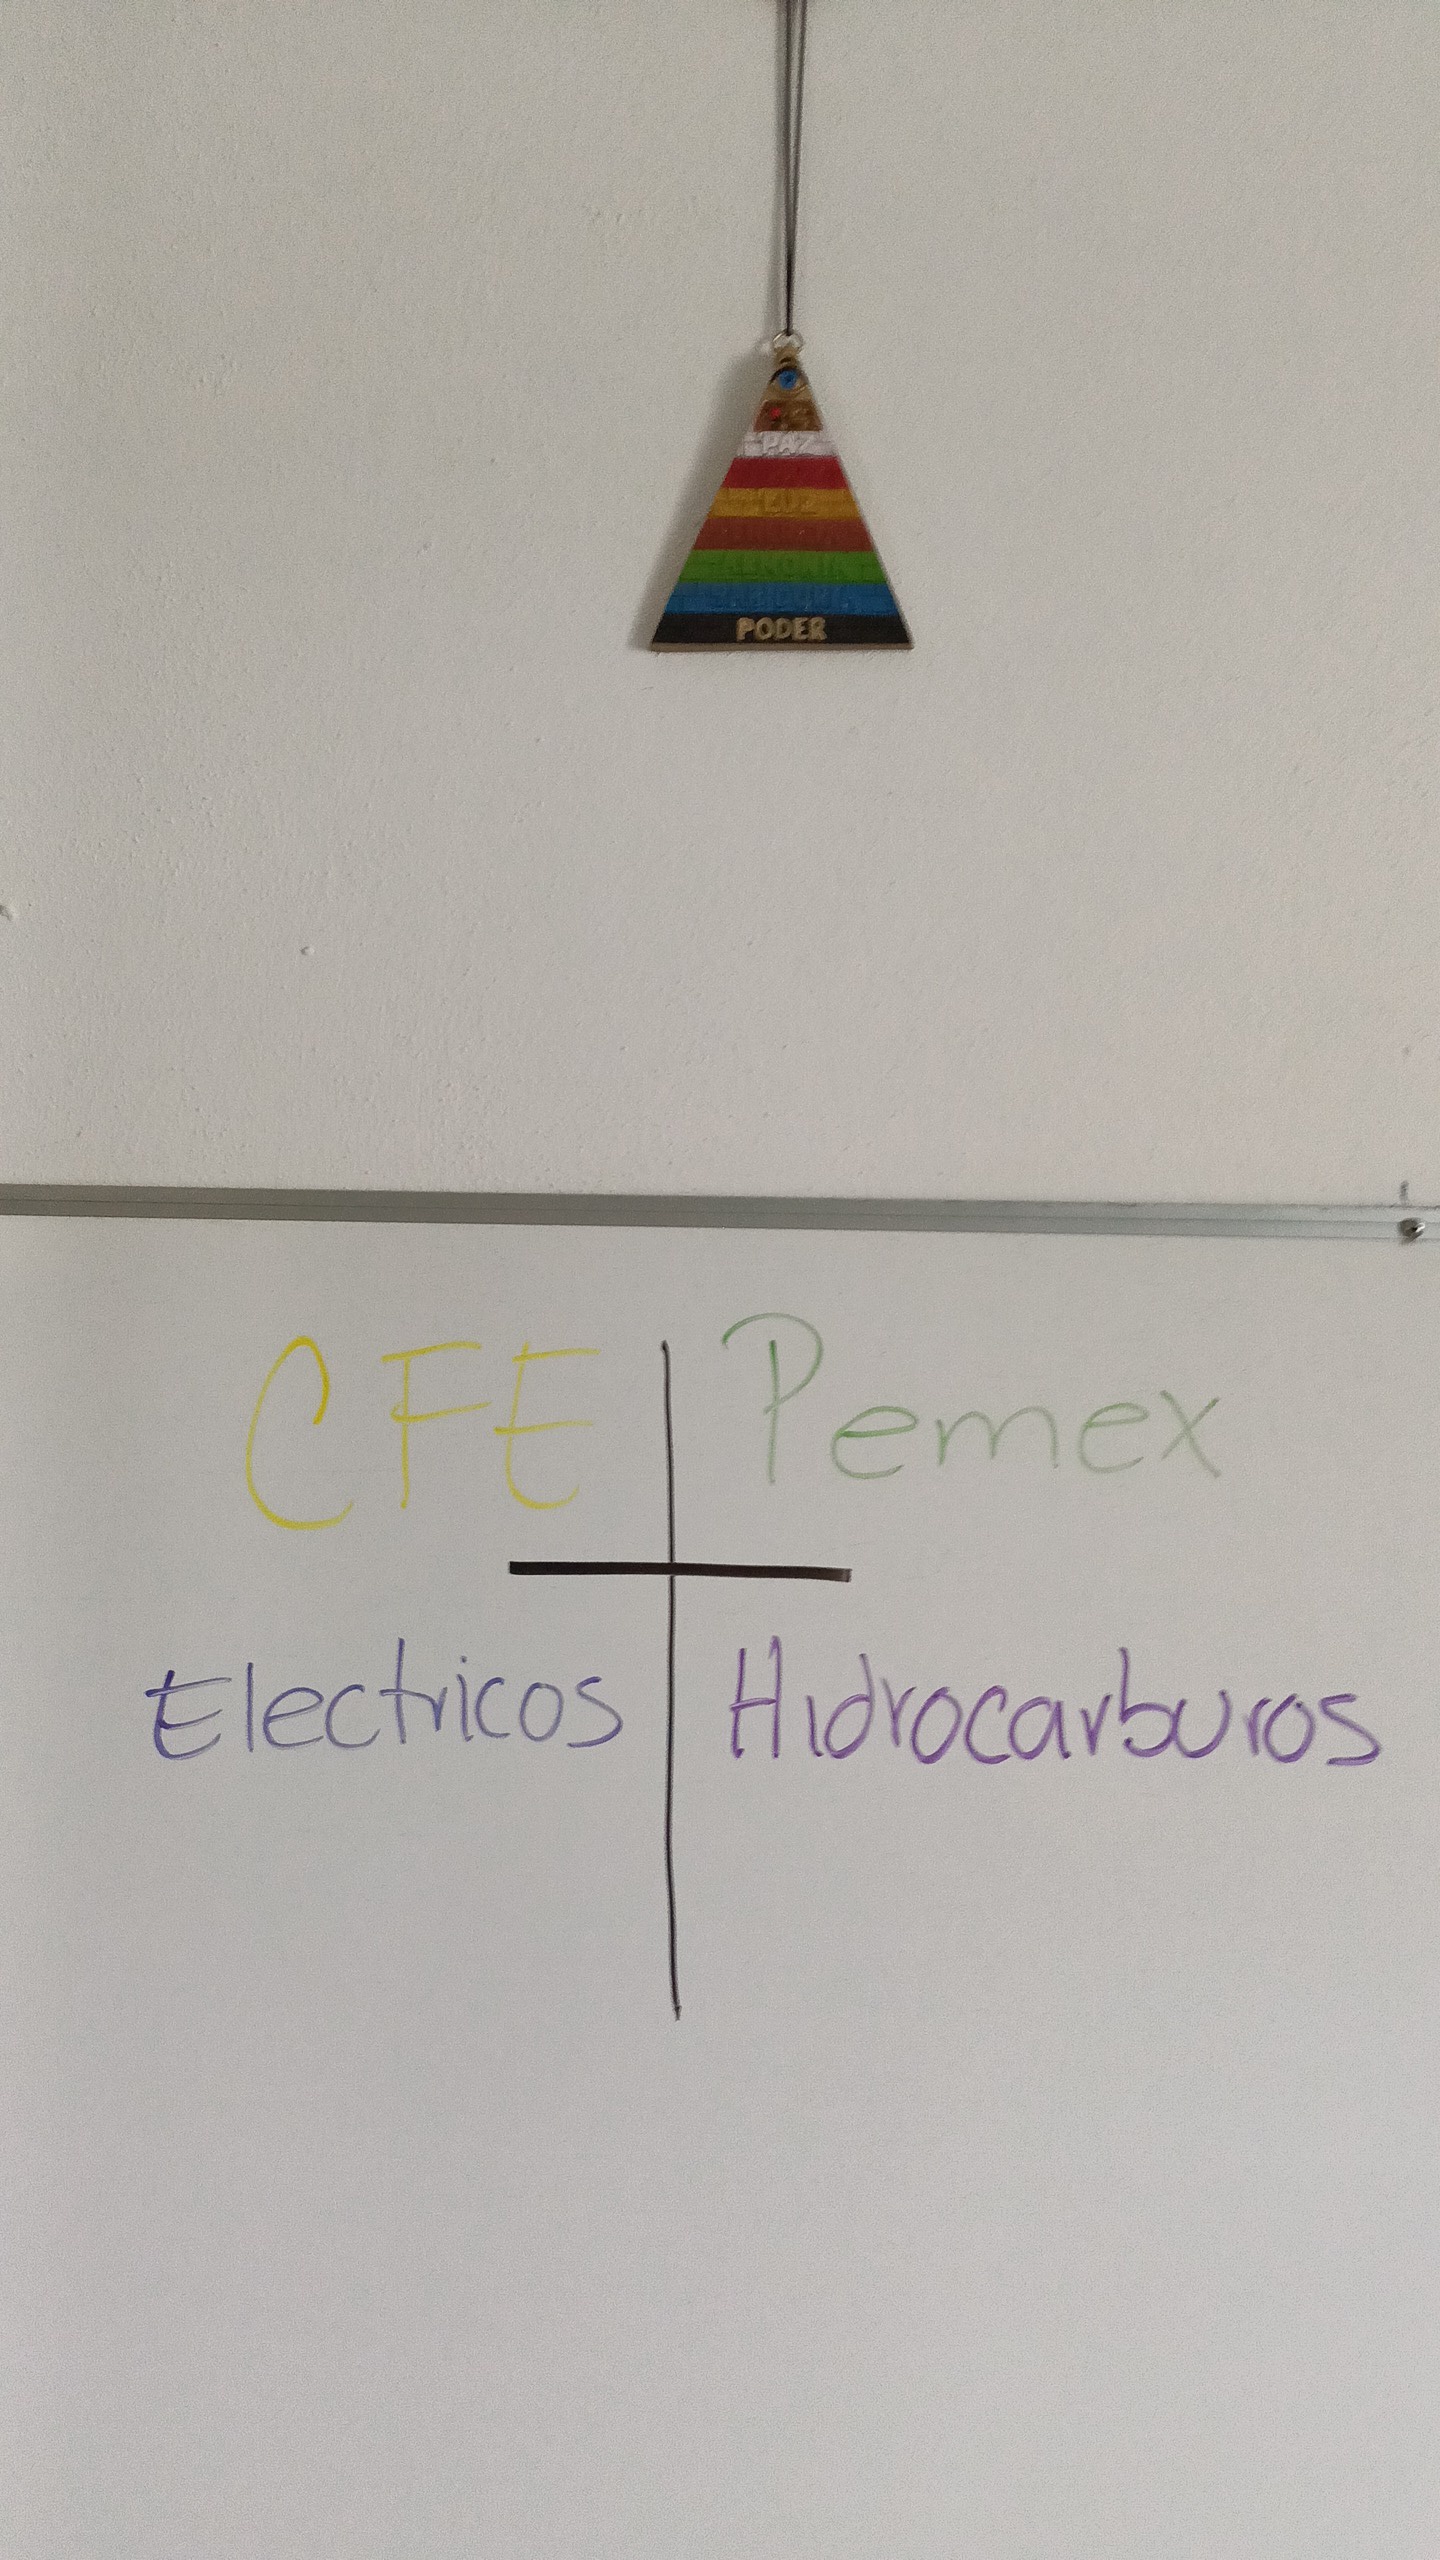 PAZ
LUZ
PODER
CFE Pemex
Electricos Hidrocarburos